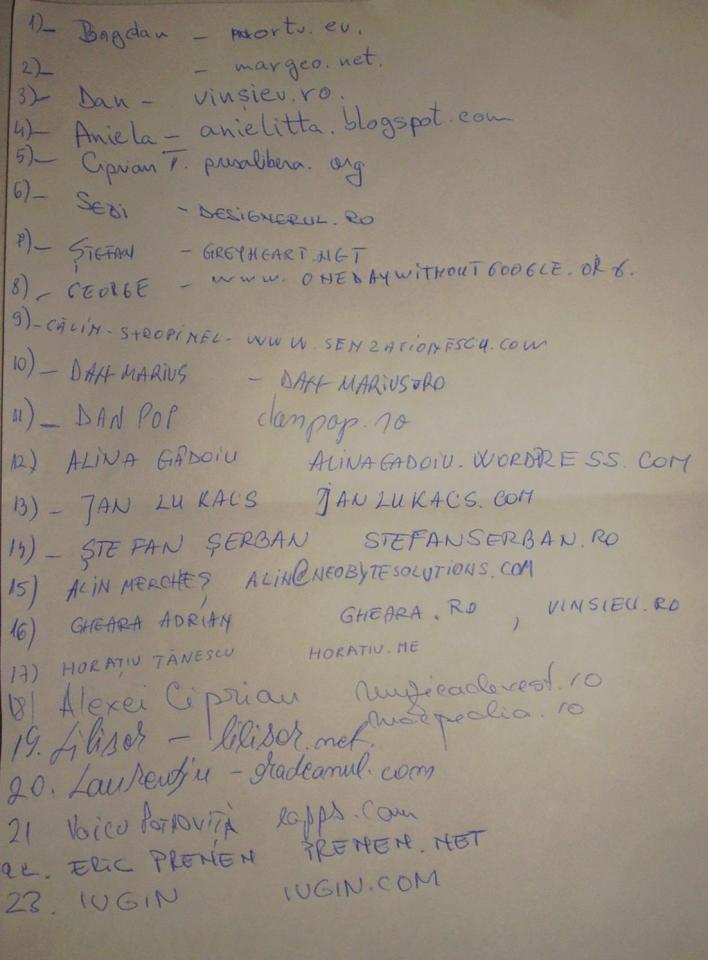 1)- Bogdan - portv.eu.
2)- - margeo.net.
3)- Dan - vinsieu.ro.
4)- Aniela - anielitta.blogspot.com
5)- Ciprian T. presalibera.org
6)- SEBI - DESIGNERUL.RO
7)- ȘTEFAN - GREYHEART.NET
8)- GEORGE - WWW.ONEDAYWITHOUTGOOGLE.ORG.
9)- CĂLIN-STROPINEL- WWW.SENZATIONESCU.COM
10)- DAN MARIUS - DANMARIUS.RO
11)- DAN POP danpop.ro
12) ALINA GĂDOIU ALINAGADOIU.WORDPRESS.COM
13)- JAN LUKACS JANLUKACS.COM
14)- ȘTEFAN ȘERBAN STEFANSERBAN.RO
15) ALIN MERCHEȘ ALIN@NEOBYTESOLUTIONS.COM
16) GHEARA ADRIAN GHEARA.RO, VINSIEU.RO
17) HORAȚIU TĂNESCU HORATIU.ME
18) Alexei Ciprian muzicadevest.ro
19. Lilisor - lilisor.net.
20. Laurențiu - gradeanul.com
21 Voicu
22. ERIC PREMEN PREMEN.NET
23. IUGIN IUGIN.COM